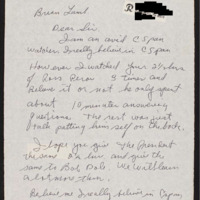 Brian Lamb
R
Dear Sir
I am an avid C span
watcher I really believe in C span
However I watched your 2 4 hours
of Ross Perot 3 times and
believe it or not he only spent
about 10 minutes answering
questions. The rest was just
talk patting himself on the back.
I hope you give the President
the same 24 hours and give the
same to Bob Dole. We will learn
a lot more then.
Believe me I really believe in Cspan,